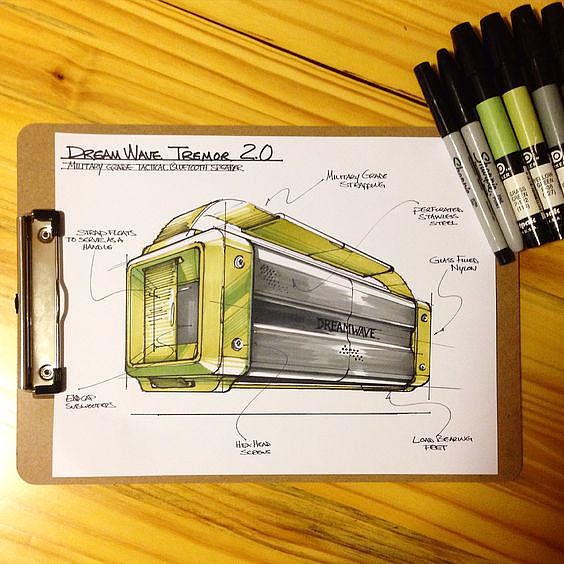 DREAM WAVE TREMOR 2.0
MILITARY GRADE TACTICAL BLUETOOTH SPEAKER
MILITARY GRADE
STRAPPING
PERFORATED
STAINLESS
STEEL
STRAP FLOATS
TO SERVE AS A
HANDLE
GLASS FILLED
NYLON
DREAMWAVE
ENDCAP
SUBWOOFERS
HEX HEAD
SCREWS
LOAD BEARING
FEET
Sharpie
Sharpie